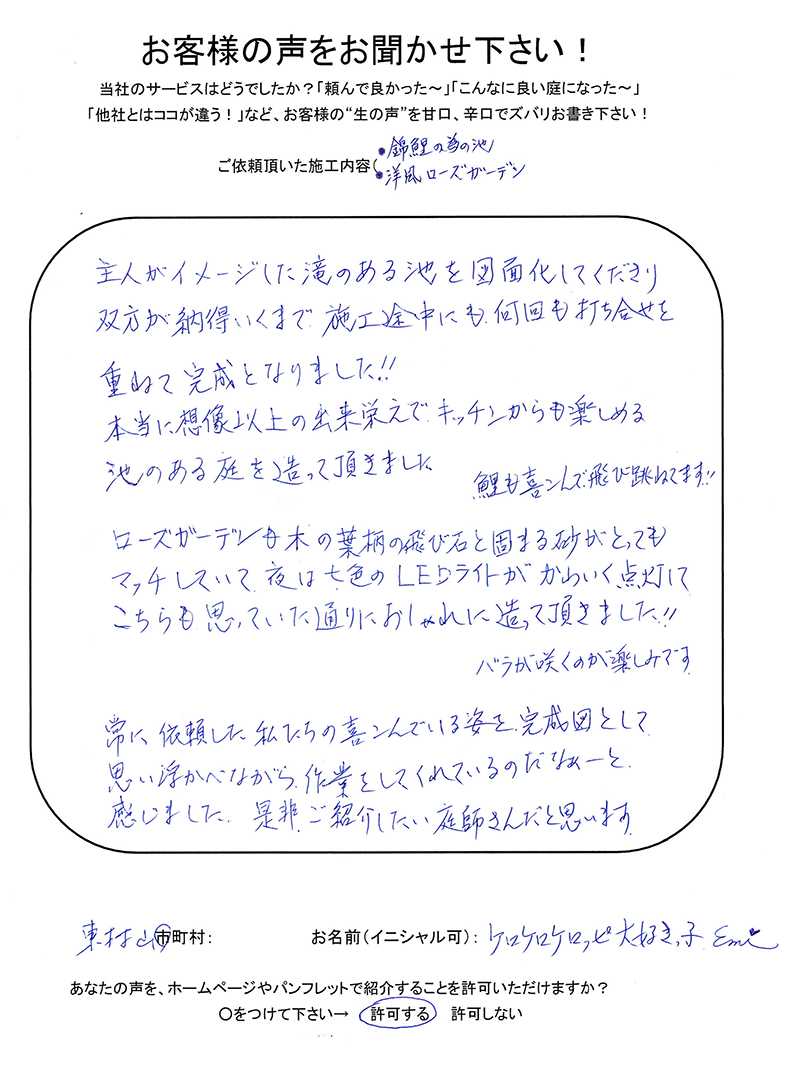 お客様の声をお聞かせ下さい！
当社のサービスはどうでしたか？「頼んで良かった～」「こんなに良い庭になった～」
「他社とはココが違う！」など、お客様の“生の声”を甘口、辛口でズバリお書き下さい！
・錦鯉の為の池
ご依頼頂いた施工内容（・洋風ローズガーデン
主人がイメージした滝のある池を図面化してくださり
双方が納得いくまで、施工途中にも、何回も打ち合せを
重ねて完成となりました!!
本当に想像以上の出来栄えで、キッチンからも楽しめる
池のある庭を造って頂きました
鯉も喜こんで飛び跳ねてます!!
ローズガーデンも木の葉柄の飛び石と固まる砂がとっても
マッチしていて、夜は七色のLEDライトがかわいく点灯して
こちらも思っていた通りにおしゃれに造って頂きました!!
バラが咲くのが楽しみです
常に、依頼した私たちの喜こんでいる姿を、完成図として
思い浮かべながら、作業をしてくれているのだなぁーと、
感じました。是非、ご紹介したい庭師さんだと思います
東村山市町村： お名前（イニシャル可）：ケロケロケロッピ大好きっ子 Emi
あなたの声を、ホームページやパンフレットで紹介することを許可いただけますか？
〇をつけて下さい→ 許可する 許可しない